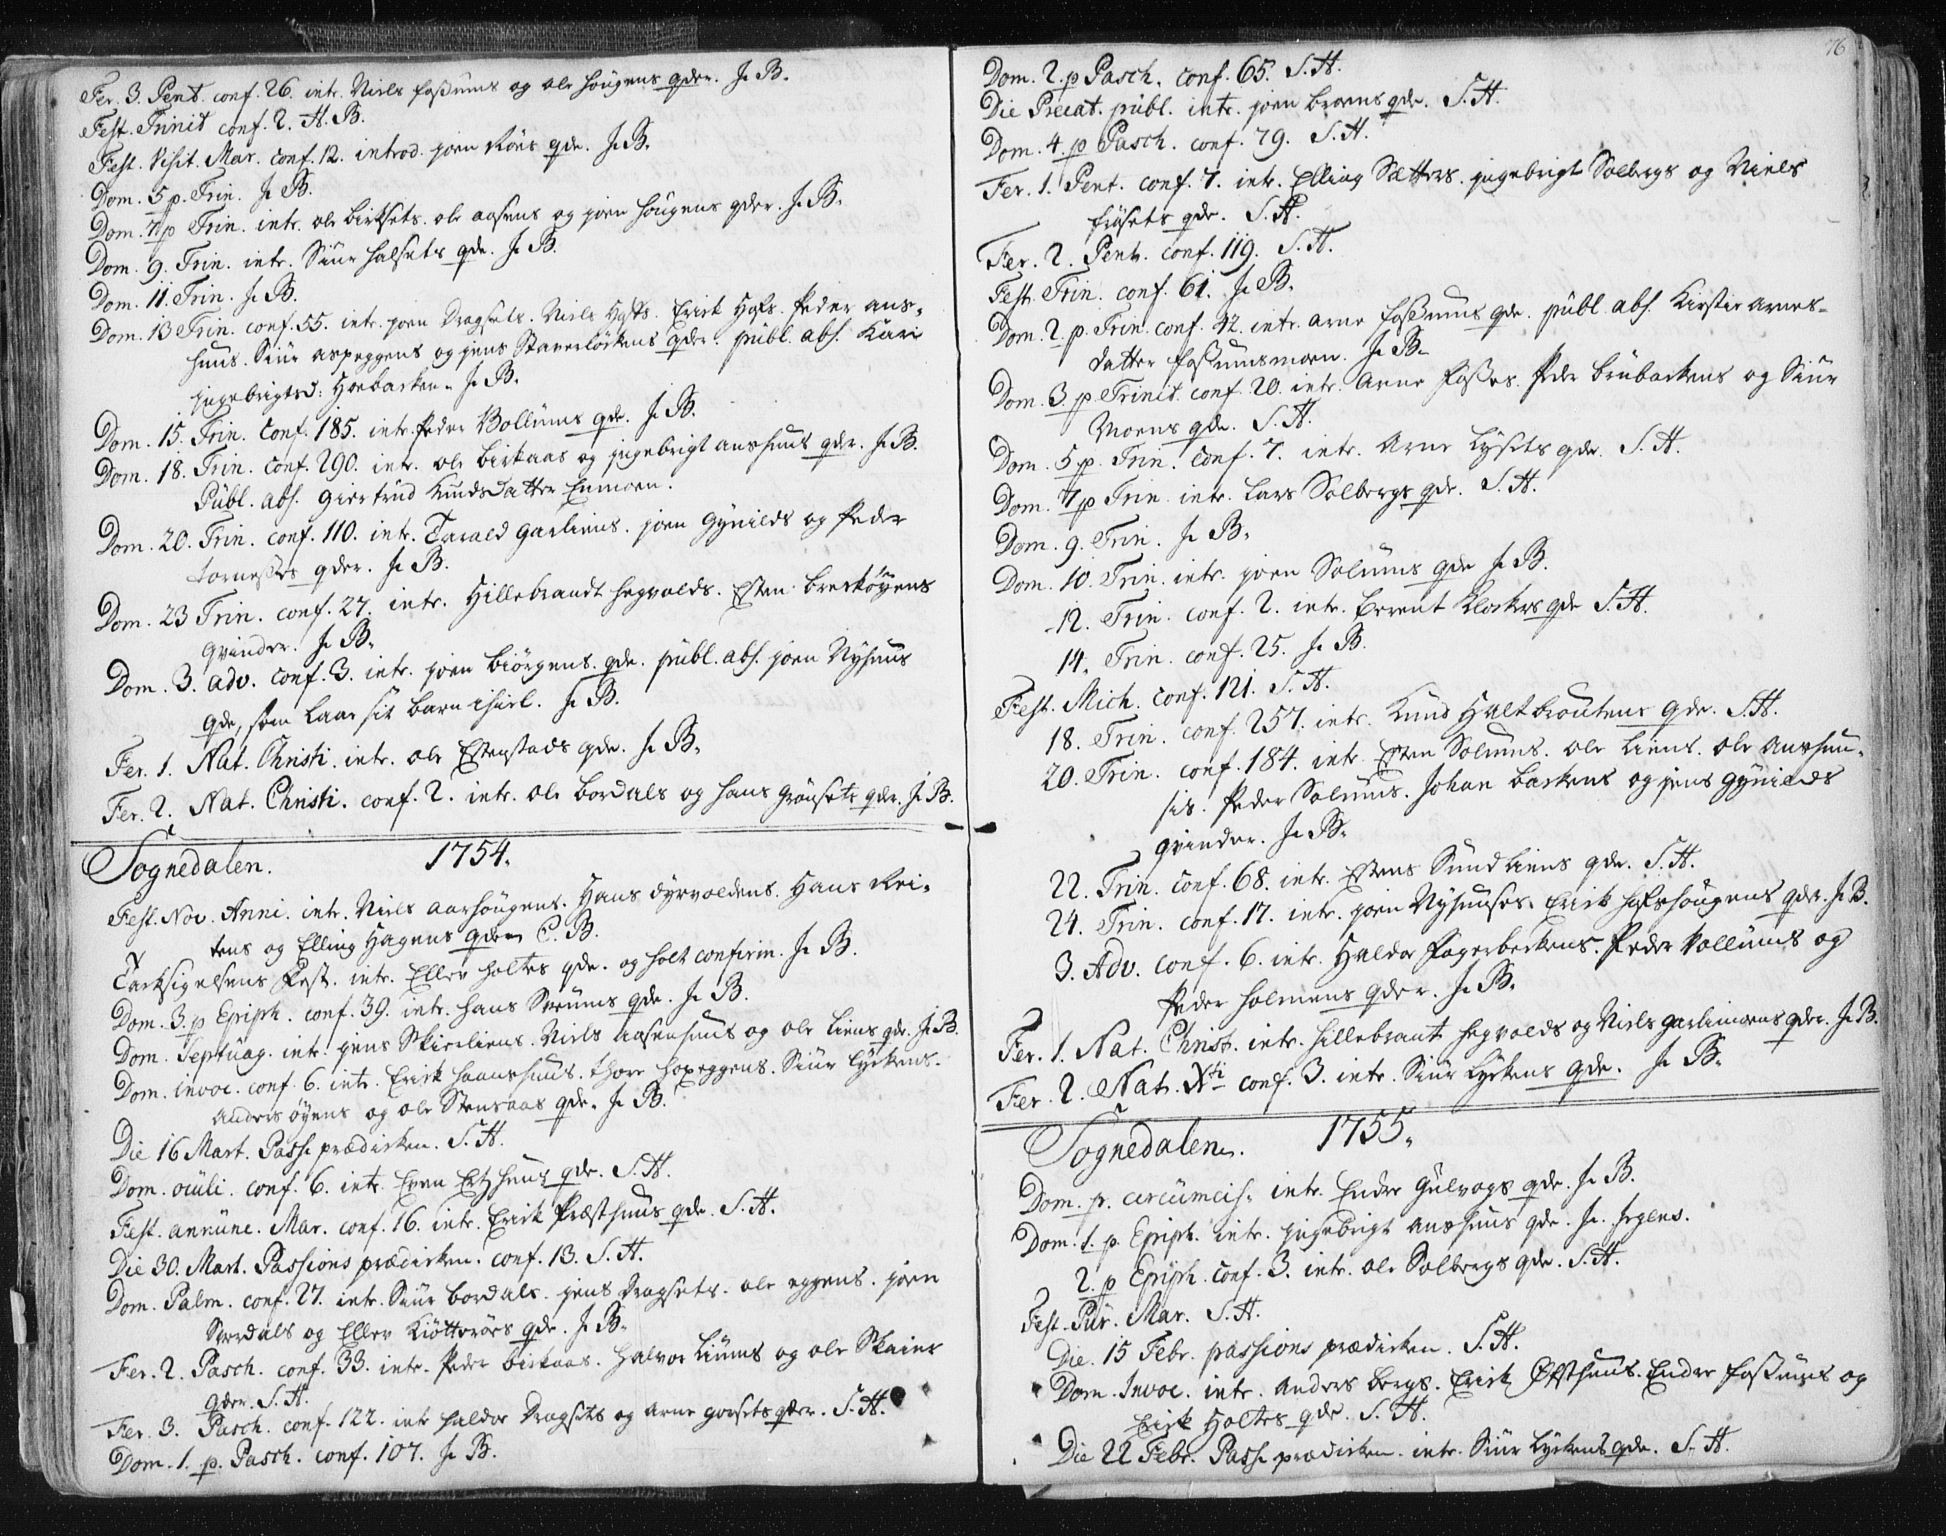 Fer. 3. Pent. conf. 26. intr. Niels Foßums og ole Hougens qder. J. B.
Fest. Trinit conf. 2. H. B.
Fest. Visit. Mar. conf. 12. introd. joen Röes qde. J. B.
Dom. 5 p. Trin. J. B.
Dom. 7 p Trin. intr. ole birksets. ole aasens og joen Hougens qder. J. B.
Dom. 9. Trin. intr. Siur Halsets qde. J. B.
Dom. 11. Trin. J. B.
Dom. 13 Trin. conf. 55. intr. joen Dragsets. Niels Hofs. Erick Hofs. Peder ans-
huus. Siur aspeggens og jens Staverlöckens qder. publ. abs. Kari
jngebrigtsd: Hoebacken. J. B.
Dom. 15. Trin. Conf. 185. intr. Peder Bollums qde. J. B.
Dom. 18. Trin. Conf. 290. intr. ole birkaas og jngebrigt anshuus qder. J. B.
Publ. abs. Giertrud Knudsdatter Enmoen.
Dom. 20. Trin. conf. 110. intr. Tarald garliens. joen Gynilds og Peder
tørneßes qder. J. B.
Dom. 23 Trin. conf. 27. intr. Hillebrandt hegvolds. Esten breckøyens
qvinder. J. B.
Dom. 3. adv. conf. 3. intr. joen biörgens qde. publ. abs. joen Nyhuus
qde, som laae sit barn ihiel. J. B.
Fer. 1. Nat. Christi. intr. ole Estenstads qde. J. B.
Fer. 2. Nat. Christi. conf. 2. intr. ole bordals og hans grönsets qder. J. B.
Sognedalen. 1754.
Fest. Nov. Anni. intr. Niels aarhougens. Hans dyrvoldens. Hans Rei-
tens og Elling Hagens qder. C. B.
Tacksigelsens Fest. intr. Ellev holtes qde. og holt confirm. J. B.
Dom. 3. p Epiph. conf. 39. intr. hans Sveums qde. J. B.
Dom. Septuag. intr. jens Skieeliens. Niels aasenhuus og ole liens qde. J. B.
Dom. invoc. conf. 6. intr. Erick haanshuus. thore hoxeggens. Siur lyckens.
anders öyens og ole Stensaas qde. J. B.
Die 16 Mart. Pass. prædicken. S. H.
Dom. oculi. conf. 6. intr. Even Etzhuus qde. S. H.
Fest. annunc. Mar. conf. 16. intr. Erick Præsthuus qde. S. H.
Die 30. Mart. Passions prædicken. conf. 13. S. H.
Dom. Palm. conf. 27. intr. Siur bordals. jens Dragsets. ole eggens. joen
Sverdals og Ellev Kiötteröes qde. J. B.
Fer. 2. Pasch. conf. 33. intr. Peder birkaas. Halvor Liums og ole Skaines
qder. S. H.
Fer. 3. Pasch. conf. 122. intr haldor Dragsets og arne gorsets qder. S. H.
Dom. 1. p. Pasch. conf. 107. J. B.
76
Dom. 2. p Pasch. conf. 65. S. H.
Die Precat. publ. intr. joen broens qde. S. H.
Dom. 4. p Pasch. conf. 79. S. H.
Fer. 1. Pent. conf. 7. intr. Elling Sætters. jngebrigt Solbergs og Niels
frösets qde. S. H.
Fer. 2. Pent. conf. 119. S. H.
Fest. Trin. conf. 61. J. B.
Dom. 2. p. Trin. conf. 42. intr. arne foßums qde. publ. abs. Kirstie arnes-
datter foßumsmoen. J. B.
Dom. 3 p Trinit. conf. 20. intr. Arne foßes. Peder brubackens og Siur
Moens qde. S. H.
Dom. 5 p. Trin. conf. 7. intr. Arne lysets qde. S. H.
Dom. 7 p Trin. intr. Lars Solbergs qde. S. H.
Dom. 9. Trin. J. B.
Dom. 10. Trin. intr. joen Solums qde J. B.
12. Trin. conf. 2. intr. berent Klockers qde S. H.
14. Trin. conf. 25. J. B.
Fest. Mich. conf. 121. S. H.
18. Trin. conf. 257. intr. Knud Haltbroutens qde. S. H.
20. Trin. conf. 184. intr. Esten Solums. ole Liens. ole anshuu-
sis. Peder Solums. Johan backens og jens gynilds
qvinder. J. B.
22. Trin. conf. 68. intr. Estens Sundliens qde. S. H.
24. Trin. conf. 17. intr. joen Nyhuuses. Erick hofshougens qder. J. B.
3. Adv. conf. 6. intr. Haldor Fagerbeckens. Peder Vollums og
Peder holmens qder. J. B.
Fer. 1. Nat. Christ. intr. hillebrant hegvolds og Niels garlimoens qder. J. B.
Fer. 2. Nat. Xti conf. 3. intr. Siur Lyckens qde. J. B.
Sognedalen. 1755.
Dom. p. circumcis. intr. Endre Gulvogs qde. J. B.
Dom. 1. p. Epiph. intr. jngebrigt anshuus qde. J. Irgens.
2. p Epiph. conf. 3. intr. ole Solbergs qde. S. H.
Fest. Pur. Mar. S. H.
Die. 15 Febr. passions prædicken. S. H.
Dom. Invoc. intr. anders bergs. Erick Ofsthuus. Endre foßums og
Erick Holtes qde. S. H.
Die 22 Febr. Pass. prædicken. intr. Siur lyckens qde. S. H.